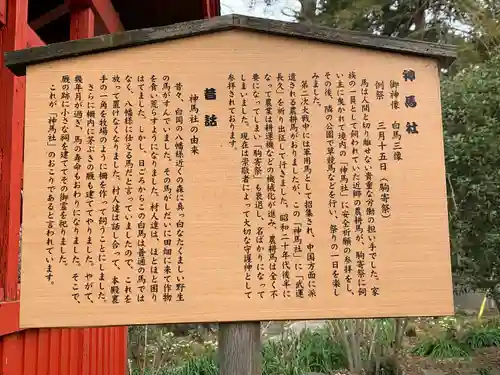 神馬社
御神像　白馬三像
例祭　三月十五日（駒寄祭）
馬は人間と切り離せない貴重な労働の担い手でした。家
族の一員として飼われていた近郷の農耕馬が、駒寄祭に飼
い主に曳かれて境内の「神馬社」に安全祈願の参拝をし、
その後、隣の公園で草競馬などを行い、祭りの一日を楽し
みました。
第二次大戦中には軍用馬として招集され、中国方面に派
遣された農耕馬がおりましたが、この「神馬社」に「武運
長久」を祈り、出征して行きました。昭和二十年代後半に
なって農業は耕運機などの機械化が進み、農耕馬は全く不
要になってしまい「駒寄祭」も衰退し、名ばかりになって
しまいました。現在は崇敬者によって大切な守護神として
参拝されております。
昔話
神馬社の由来
昔々、白岡の八幡様近くの森に真っ白なたくましい野生
の馬がすんでいました。その馬がしだいに田畑に来て作物
を食い荒らすようになりました。村人達は、ほとほと困り
はてました。しかし、日ごろからこの白馬は普通の馬では
なく、八幡様に仕える馬だと言っていましたので、これを
放って置けなくなりました。村人達は話し合って、本殿裏
手の一角を牧場のように柵を作って飼うことにしました。
さらに柵内に茅ぶきの廐も建ててやりました。やがて、
幾年月が過ぎ、馬の寿命もおわりになりました。そこで、
廐の跡に小さな祠を建ててその御霊を祀りました。
これが「神馬社」のおこりであると言われています。